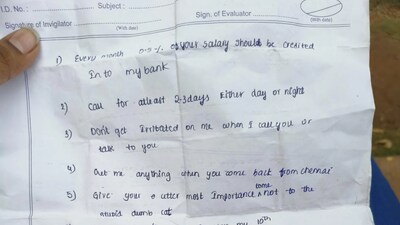 I.D. No. : Subject :
(With date)
Signature of Invigilator Sign. of Evaluator
(With date) (With date)
1) Every month % of your salary should be credited
In to my bank
2) Call for atleast 2-3days Either day or night
3) Don't get irritated on me when I call you or
talk to you
4) Get me anything when you come back from chennai
5) Give your utter most Importance to me not to the
stupid dumb cat
my 10th